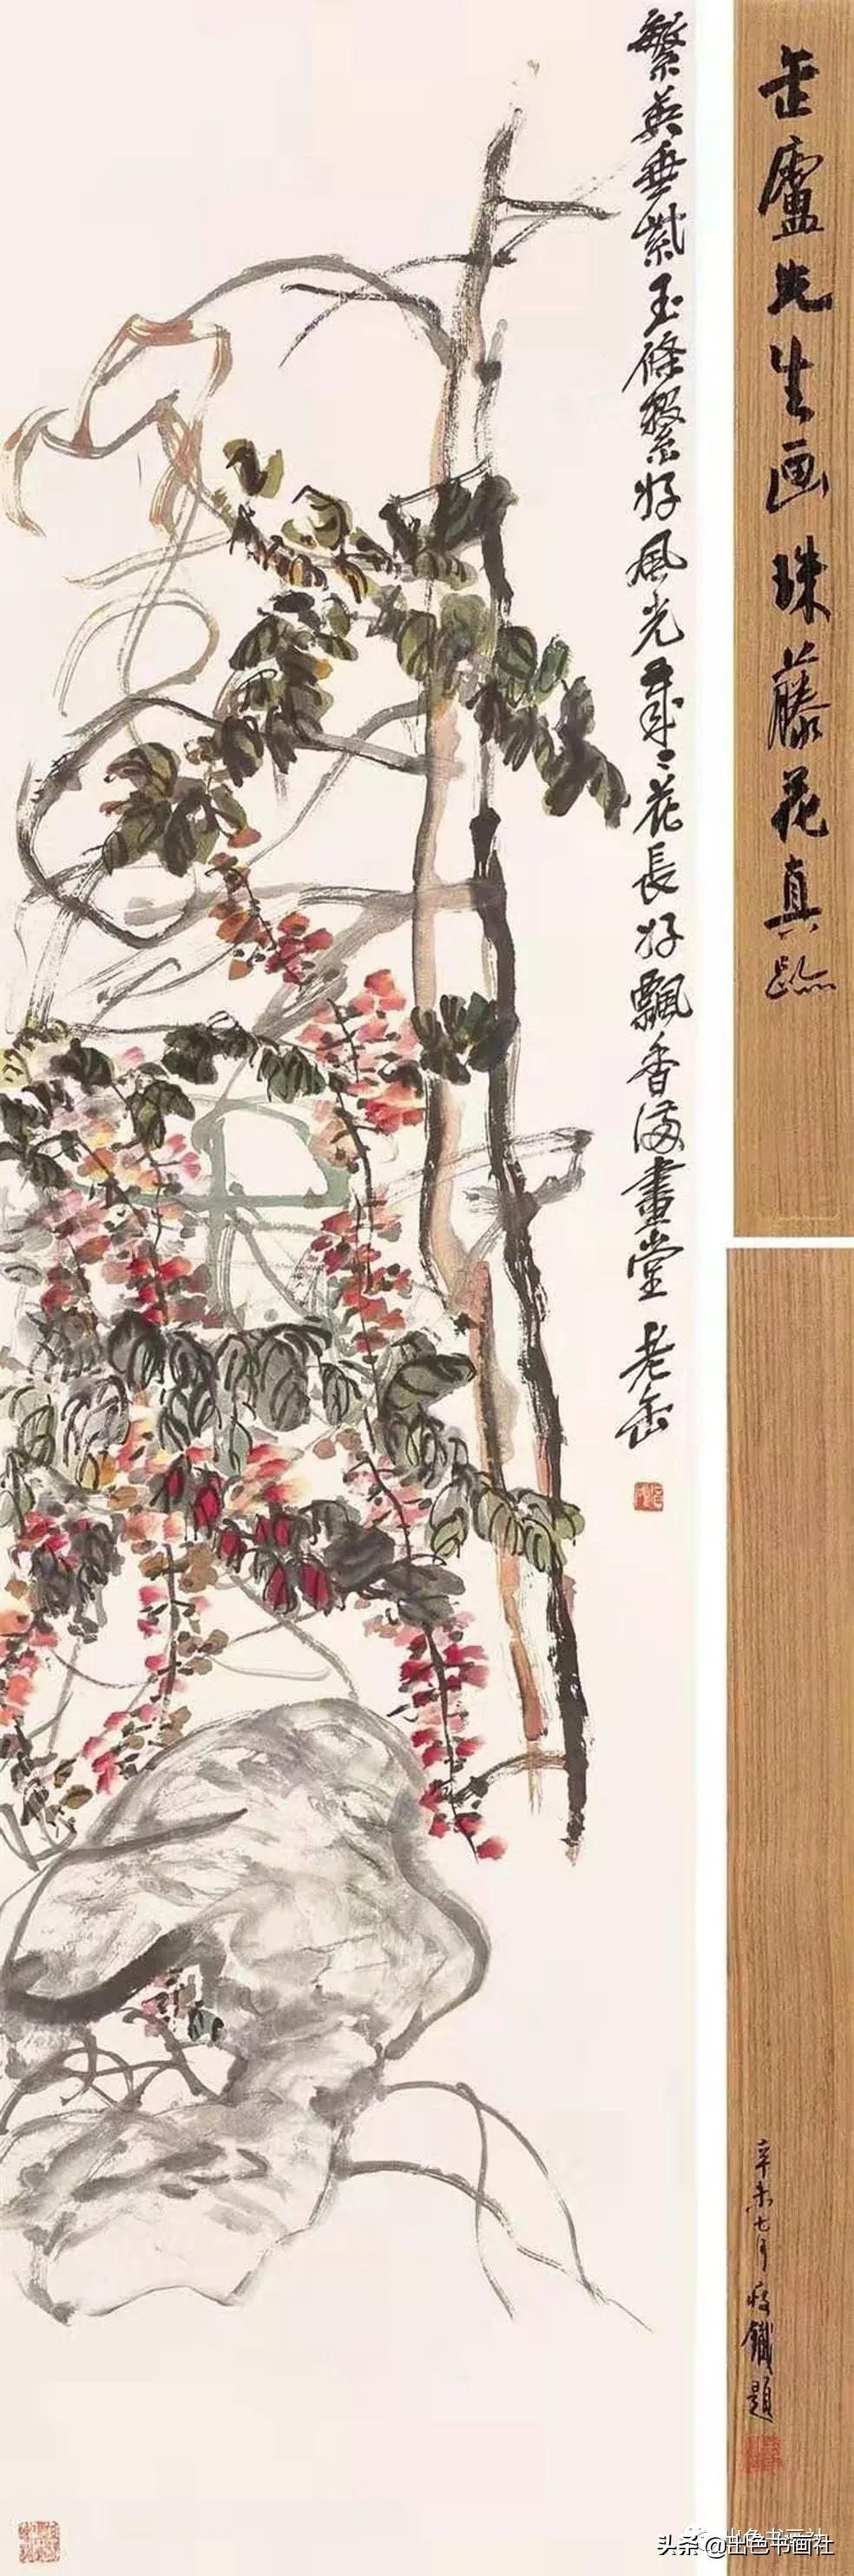 繁英垂紫玉條繫好風光歲〻花長好飄香滿畫堂 老缶
缶廬先生画珠藤花真跡
辛未七月 瘦鐵題
头条 @出色书画社